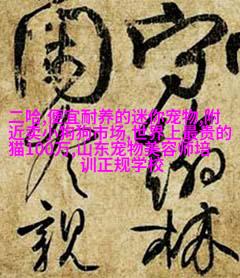 二哈,便宜耐养的迷你宠物,附
近卖小狗狗市场,世界上最贵的
猫100万,山东宠物美容师培
训正规学校
守
林
親